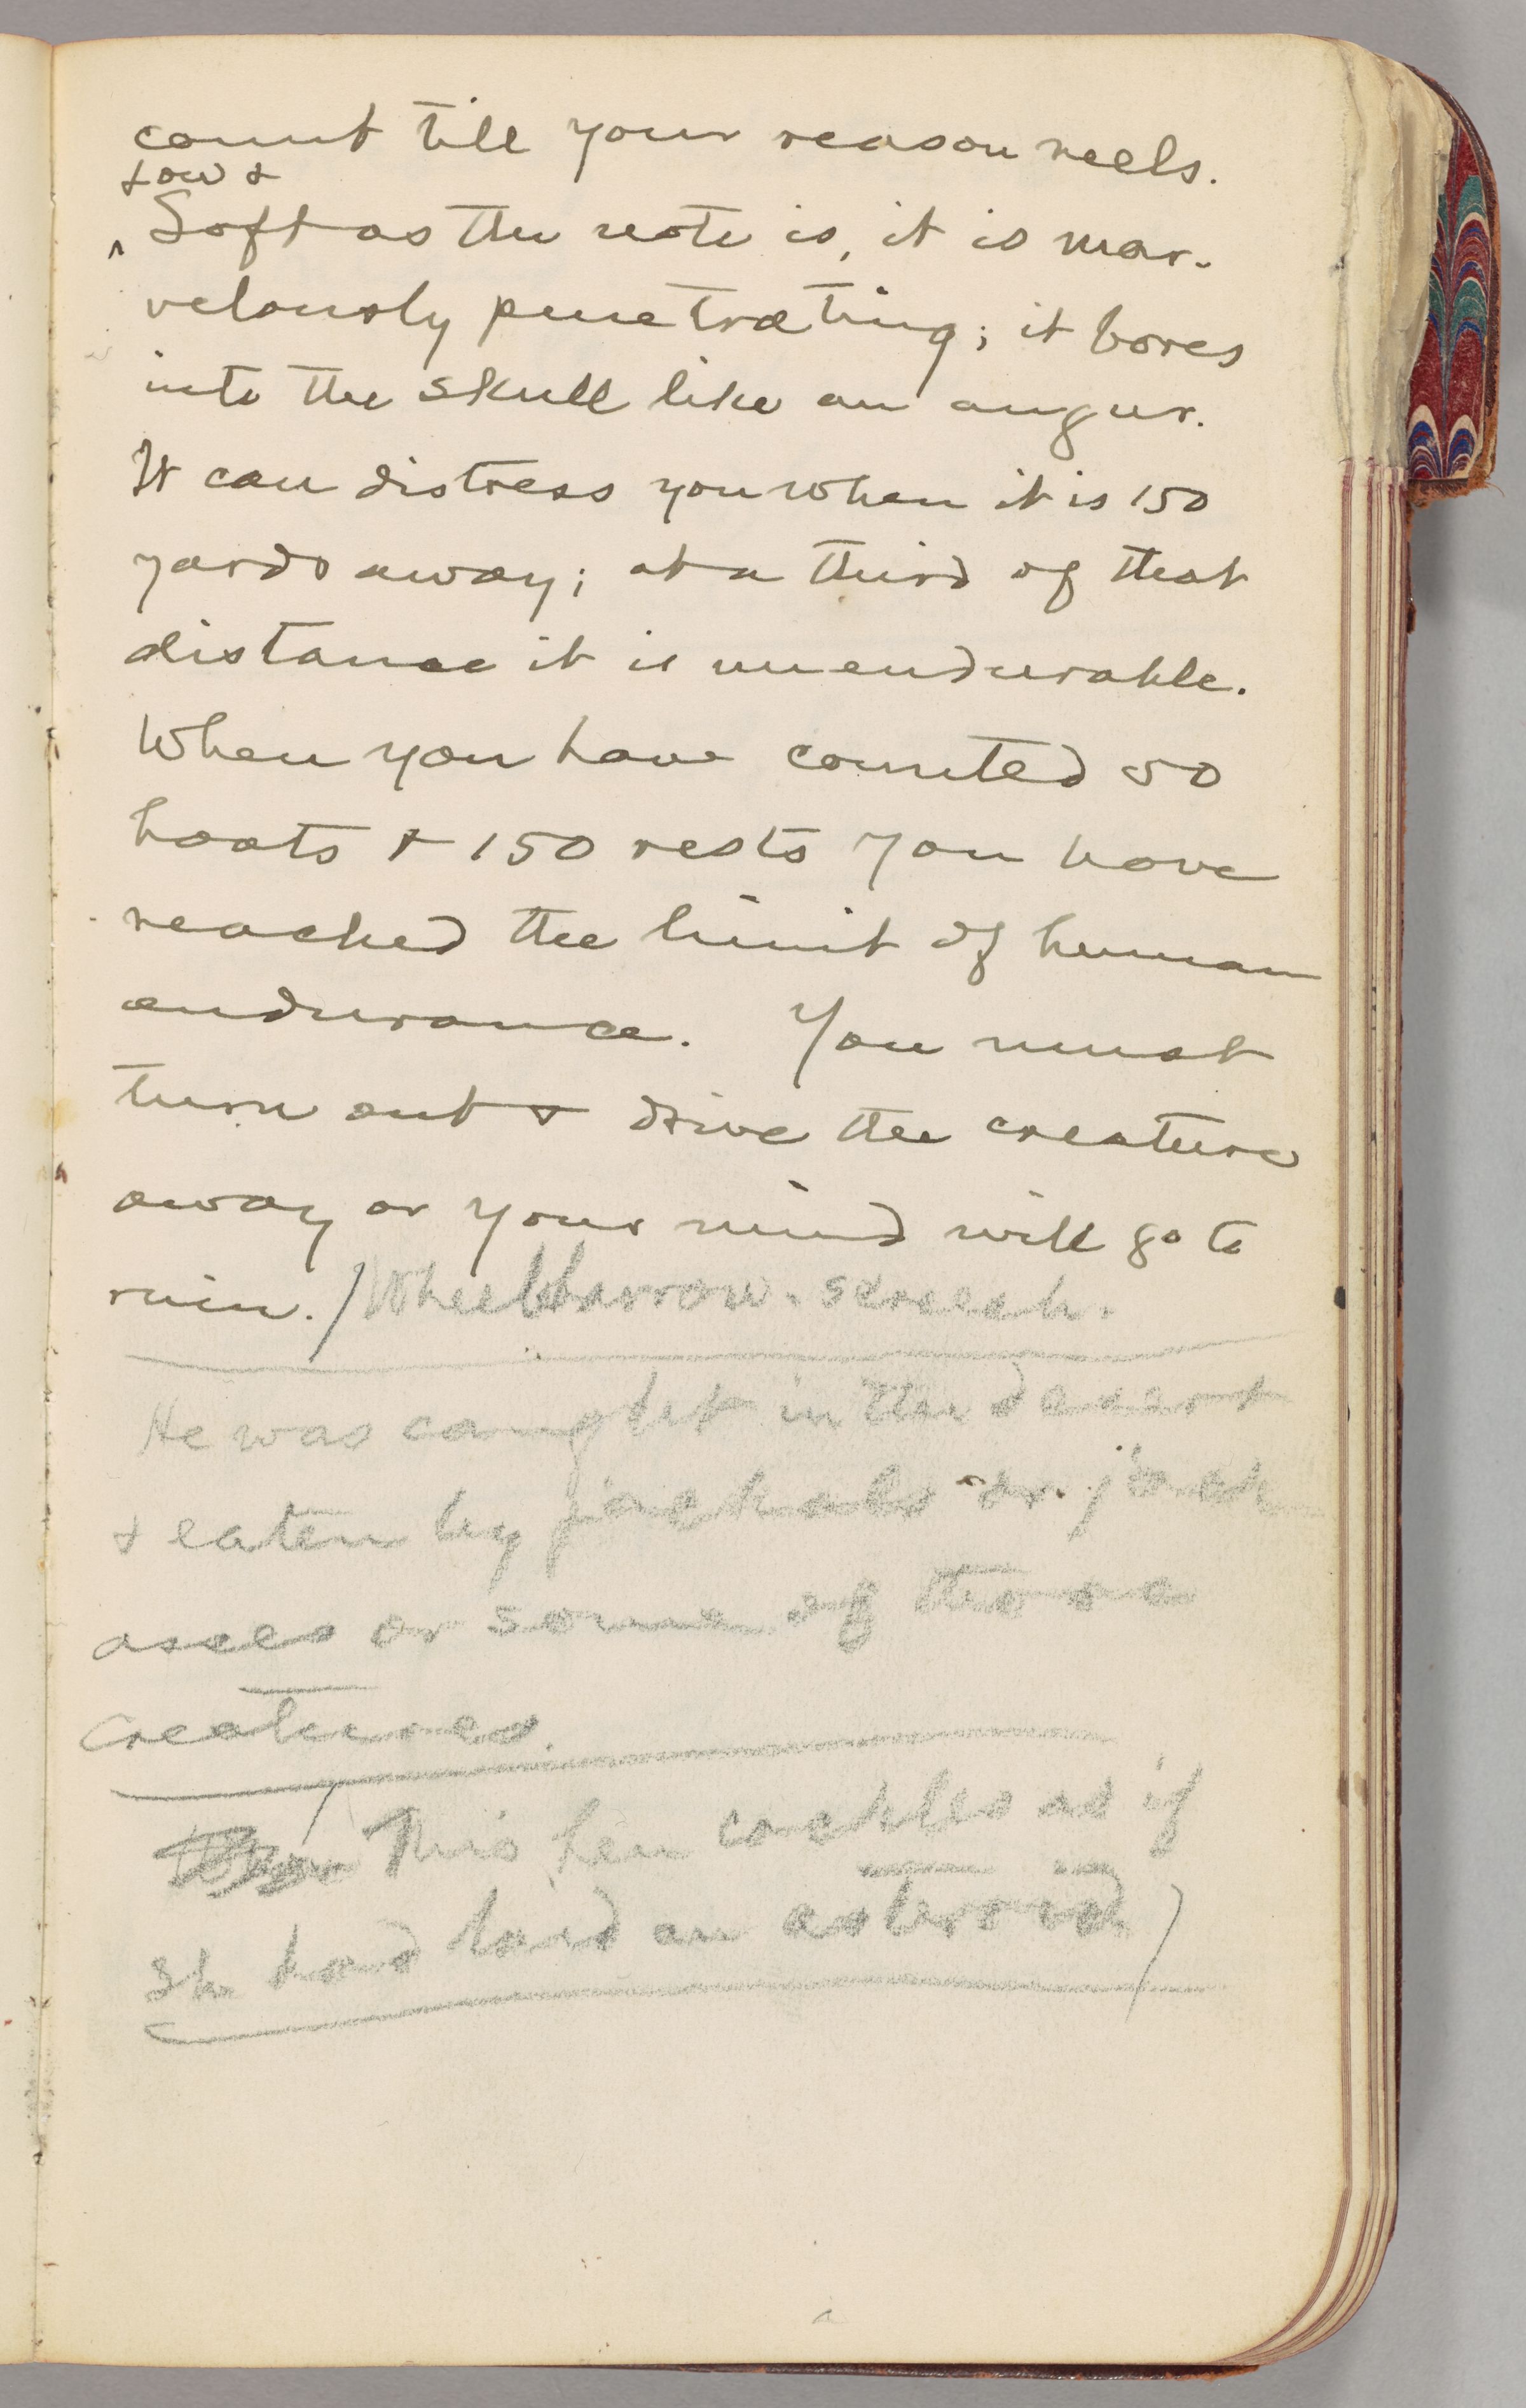 count till your reason reels.
Low &
^ Soft as the note is, it is mar-
velously penetrating; it bores
into the skull like an augur.
It can distress you when it is 150
yards away; at a third of that
distance it is unendurable.
When you have counted 50
hoots & 150 rests you have
reached the limit of human
endurance. You must
turn out & drive the creature
away or your mind will go to
ruin. / Wheelbarrow-screech.
He was caught in the desert
& eaten by jackals or jack
asses or some of those
creatures.
This hen cackles as if
she had laid an asteroid /